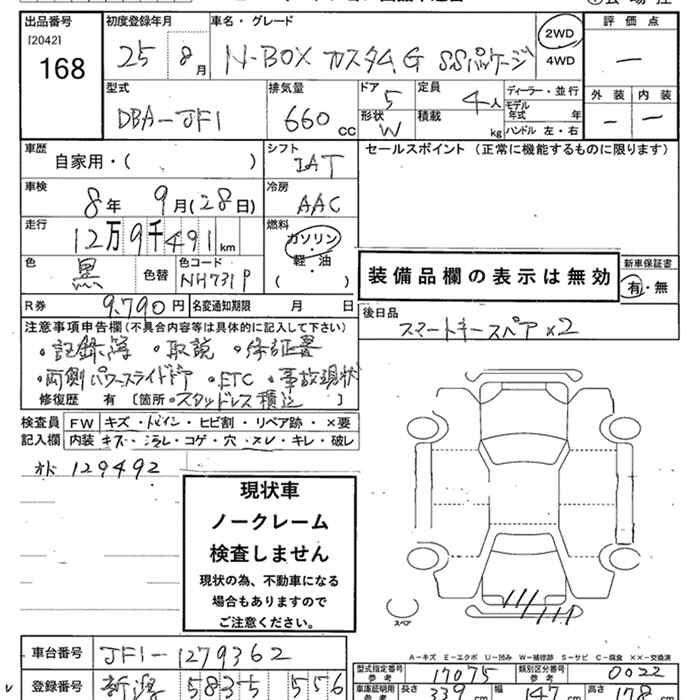 出品番号 初度登録年月 車名・グレード 評価点
[2042] 168 25 8月 N-BOX カスタム G SSパッケージ 2WD 4WD ー
型式 排気量 ドア 5 定員 4人 ディーラー・並行 外装 内装
DBA-JF1 660cc 形状 W 積載 kg モデル年式 年 ハンドル 左・右 ー ー
車歴 自家用・( ) シフト IAT セールスポイント(正常に機能するものに限ります)
車検 8年 9月(28日) 冷房 AAC
走行 12万9千491km 燃料 ガソリン・軽油 ( )
色 黒 色替 色コード NH731P 装備品欄の表示は無効 新車保証書 有・無
R券 9,790円 名変通知期限 月 日 後日品
注意事項申告欄(不具合内容等は具体的に記入して下さい) スマートキースペア×2
・記録簿 ・取説 ・保証書
・両側パワースライドドア ・ETC ・事故現状
修復歴 有 [箇所 ・スタッドレス積込 ]
検査員記入欄 FW キズ・ハイン・ヒビ割・リペア跡・×要
内装 キズ・汚レ・コゲ・穴・スレ・キレ・破レ
オド 129492
現状車
ノークレーム
検査しません
現状の為、不動車になる
場合もありますので
ご注意ください。
スペア
A-キズ E-エクボ U-凹み W-補修跡 S-サビ C-腐食 ××-交換済
車台番号 JF1-1279362 型式指定番号 参考 17075 類別区分番号 参考 0022
登録番号 新潟 583 556 車庫証明用 参考 長さ 339cm 幅 147cm 高さ 178